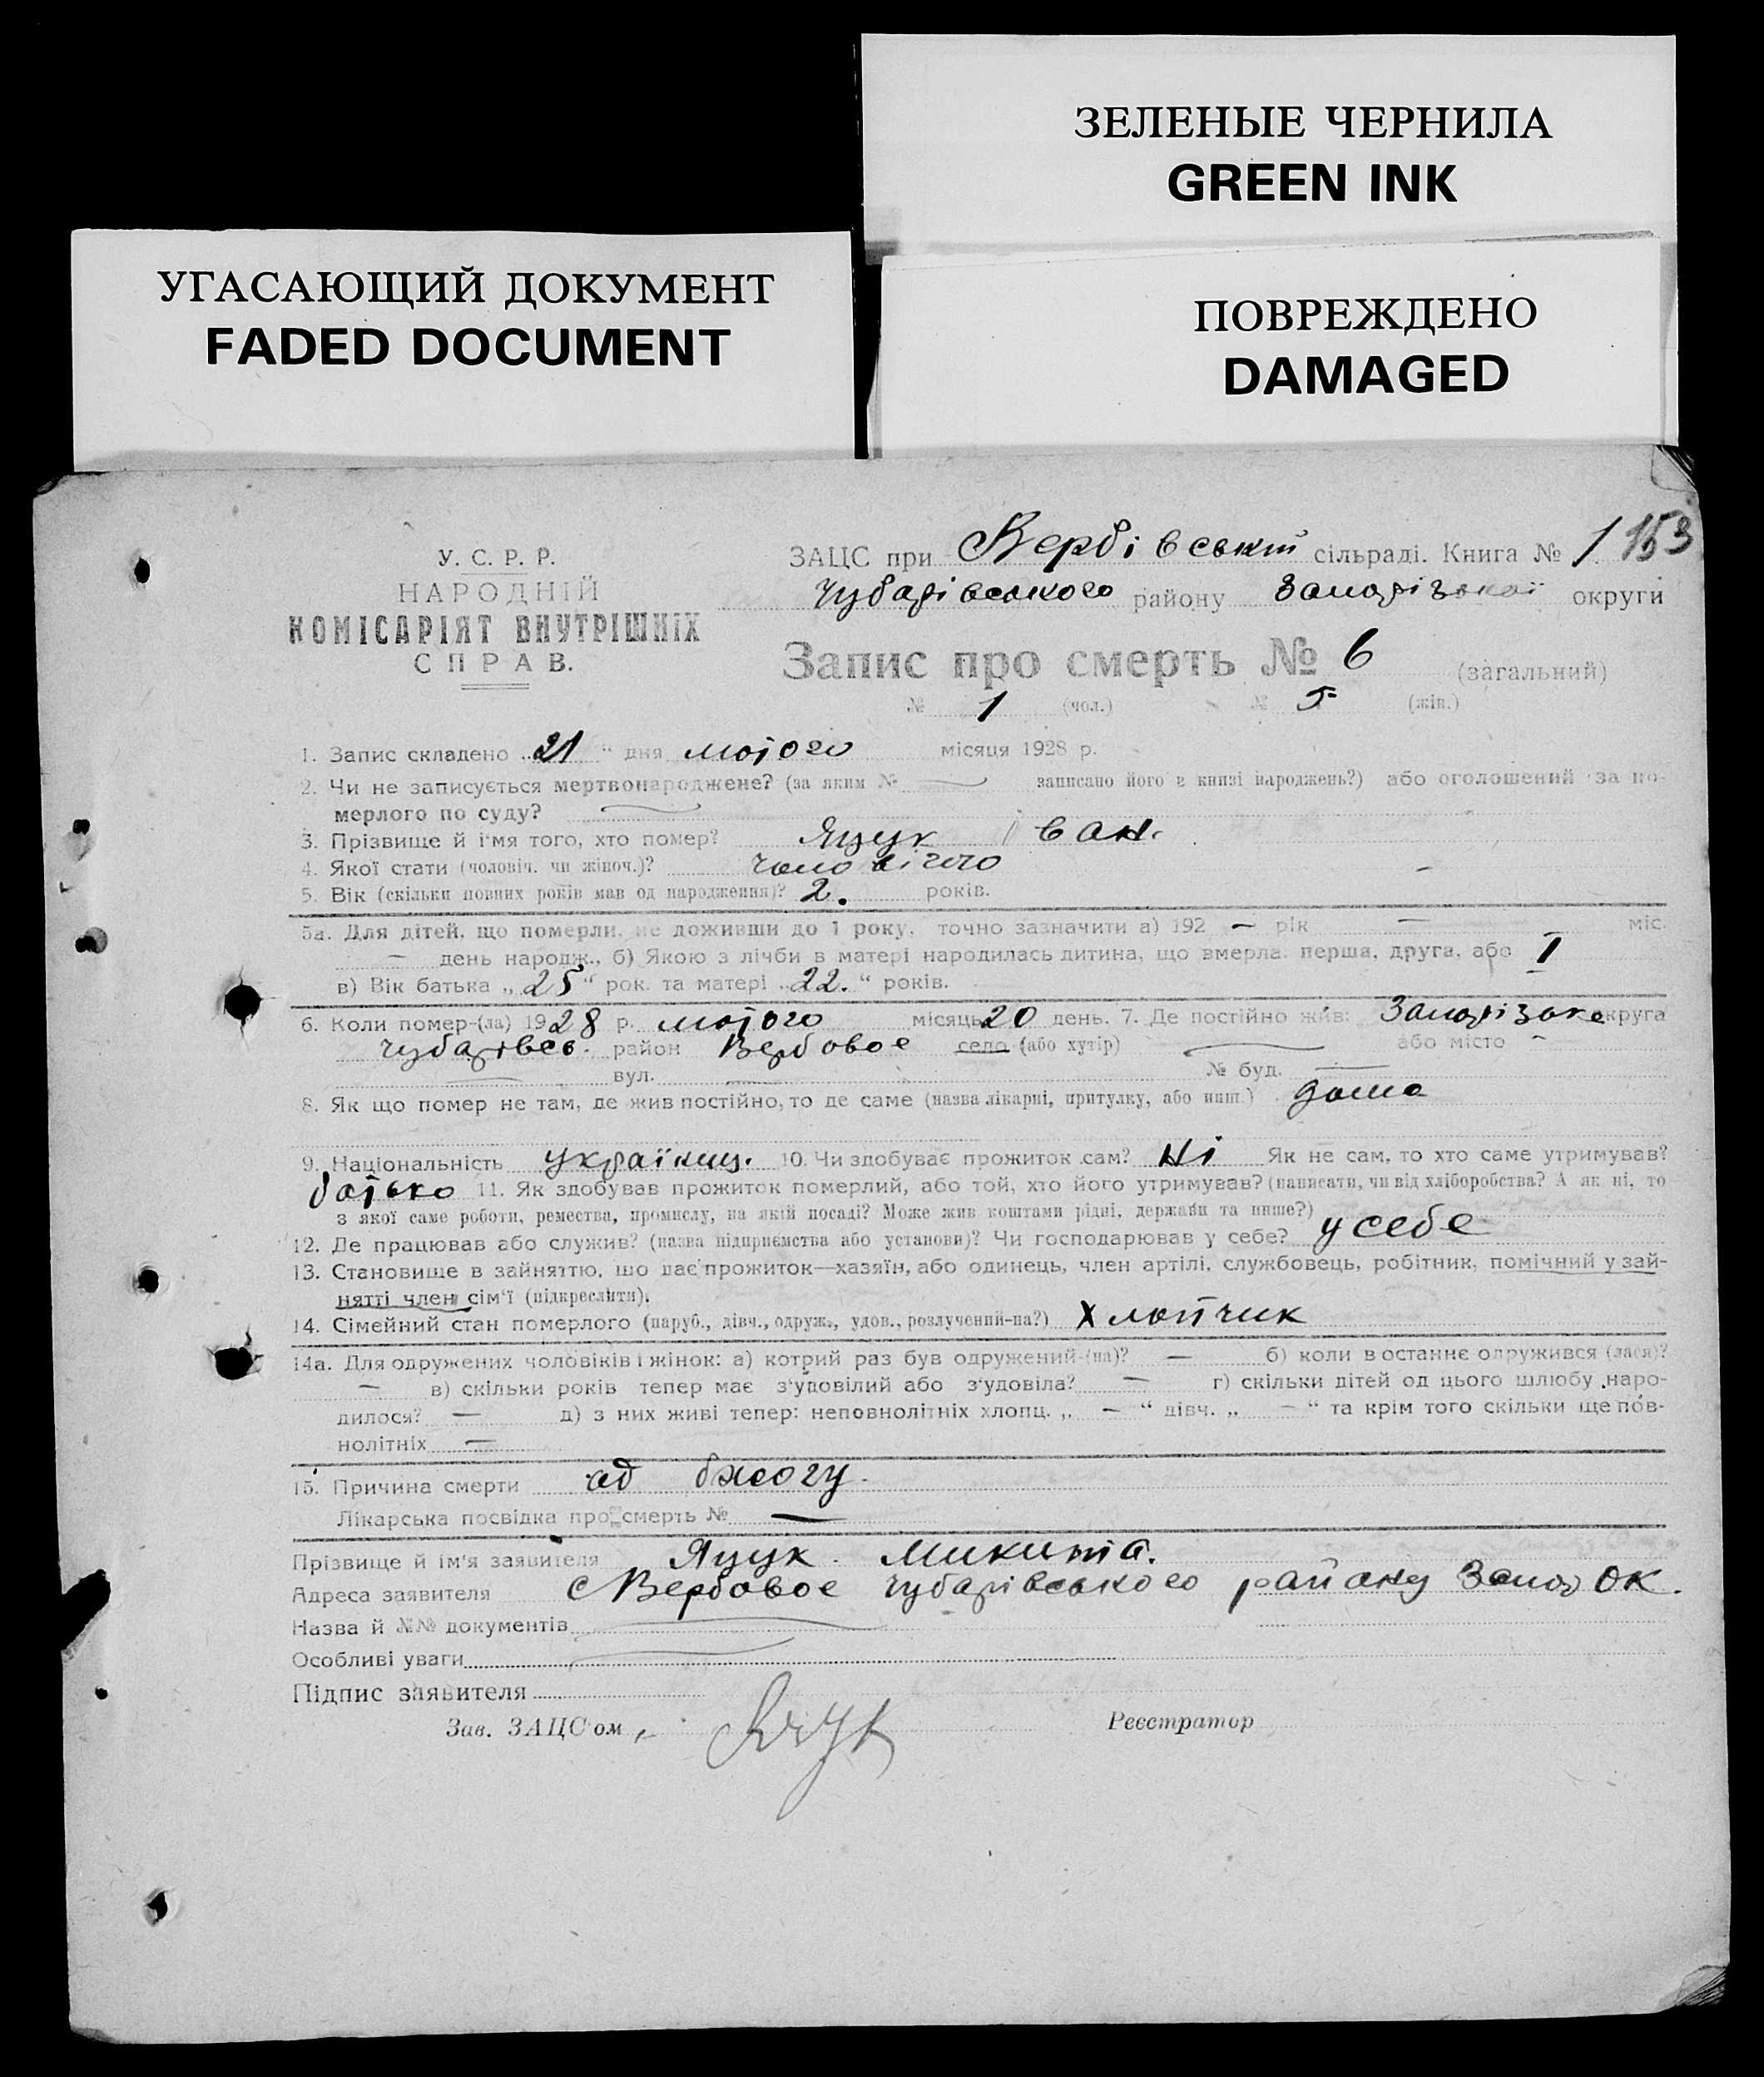 ЗЕЛЕНЫЕ ЧЕРНИЛА
GREEN INK
УГАСАЮЩИЙ ДОКУМЕНТ
FADED DOCUMENT
ПОВРЕЖДЕНО
DAMAGED
У. С. Р. Р.
НАРОДНІЙ
КОМІСАРІЯТ ВНУТРІШНІХ
СПРАВ.
ЗАЦС при Вербівські сільраді. Книга № 1 153
Чубарівського району Запорізької округи
Запис про смерть № 6 (загальний)
№ 1 (чол.) № 5 (жін.)
1. Запис складено „21“ дня лютого місяця 1928 р.
2. Чи не записується мертвонароджене? (за яким № — записано його в книзі народжень?) або оголошений за по-
мерлого по суду? —
3. Прізвище й ім'я того, хто помер? Яцук Іван.
4. Якої стати (чоловіч. чи жіноч.)? чоловічого
5. Вік (скільки повних років мав од народження)? 2. років.
5а. Для дітей, що померли, не доживши до 1 року, точно зазначити а) 192 — рік — міс.
— день народж., б) Якою з лічби в матері народилась дитина, що вмерла: перша, друга, або I
в) Вік батька „25“ рок. та матері „22.“ років.
6. Коли помер-(ла) 1928 р. лютого місяць 20 день. 7. Де постійно жив: Запорізьке округа
Чубарівсь. район Вербовое село (або хутір) — або місто —
— вул. — № буд. —
8. Як що помер не там, де жив постійно, то де саме (назва лікарні, притулку, або инш.) дома
9. Національність українц. 10. Чи здобуває прожиток сам? Ні Як не сам, то хто саме утримував?
батько 11. Як здобував прожиток померлий, або той, хто його утримував? (написати, чи від хліборобства? А як ні, то
з якої саме роботи, ремества, промислу, на якій посаді? Може жив коштами рідні, держави та инше?)
12. Де працював або служив? (назва підприємства або установи)? Чи господарював у себе? у себе
13. Становище в зайняттю, що дає прожиток—хазяїн, або одинець, член артілі, службовець, робітник, помічний у зай-
нятті член сім'ї (підкреслити).
14. Сімейний стан померлого (паруб., дівч., одруж., удов., розлучений-на?) Хлопчик
14а. Для одружених чоловіків і жінок: а) котрий раз був одружений-(на)? — б) коли востаннє одружився (лася)?
— в) скільки років тепер має з'удовілий або з'удовіла? — г) скільки дітей од цього шлюбу наро-
дилося? — д) з них живі тепер: неповнолітніх хлопц. „ — “ дівч. „ — “ та крім того скільки ще пов-
нолітніх —
15. Причина смерти од бжогу.
Лікарська посвідка про смерть № —
Прізвище й ім'я заявителя Яцук Микита.
Адреса заявителя с Вербовое Чубарівського району Запор ок.
Назва й №№ документів
Особливі уваги
Підпис заявителя
Зав. ЗАЦС'ом Яцук Реєстратор